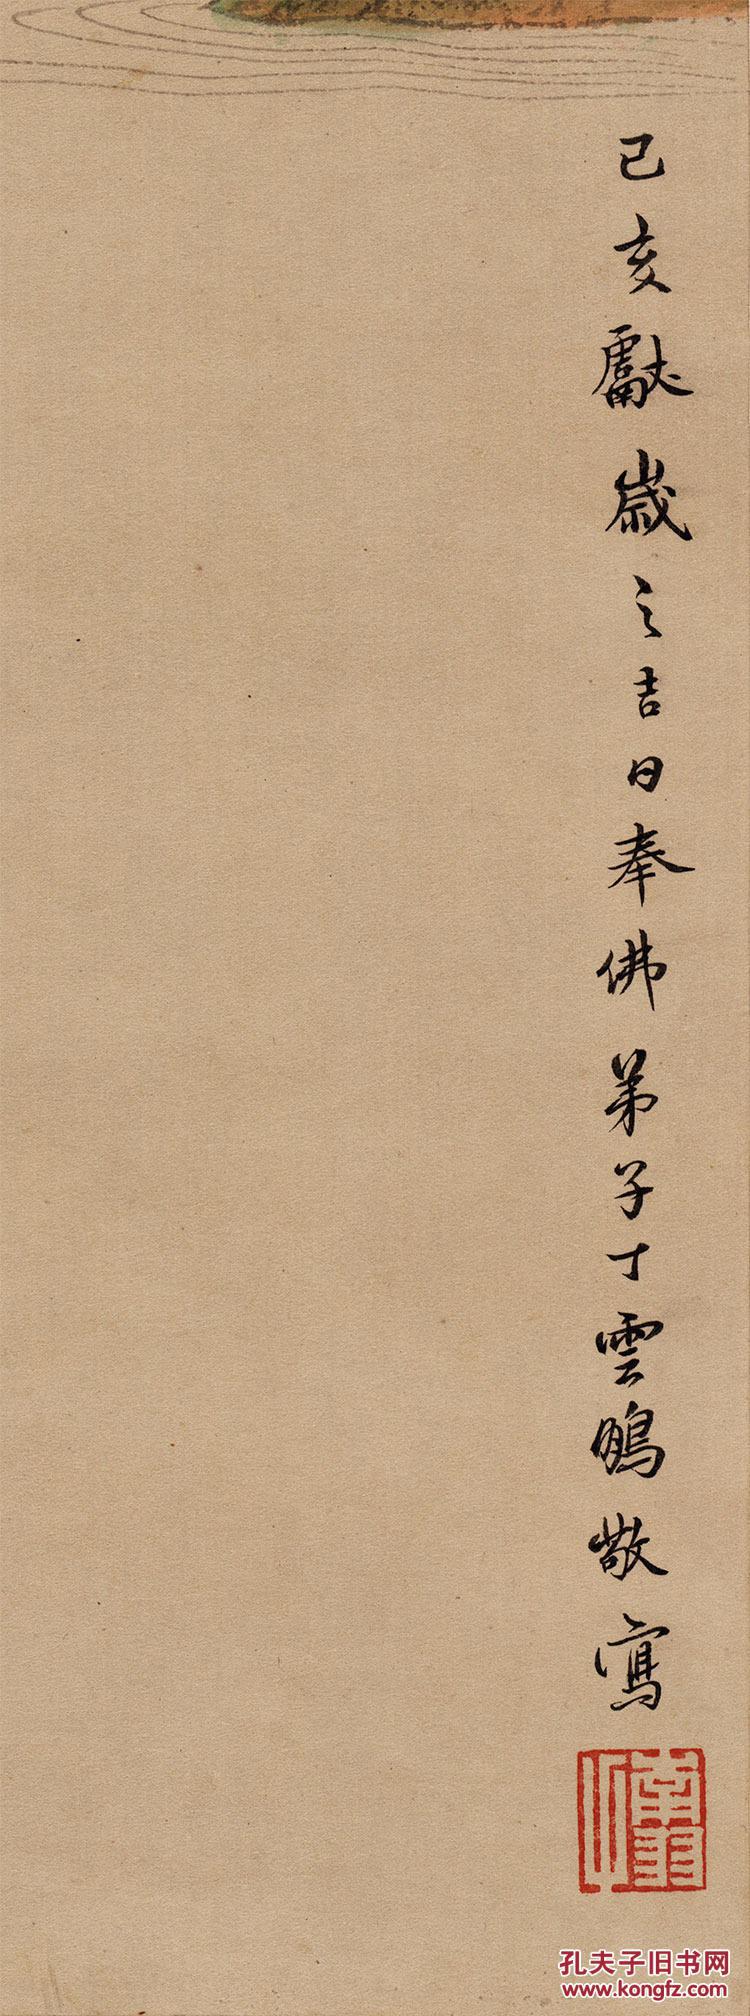 己亥獻歲之吉日奉佛弟子丁雲鵬敬寫
孔夫子旧书网
www.kongfz.com